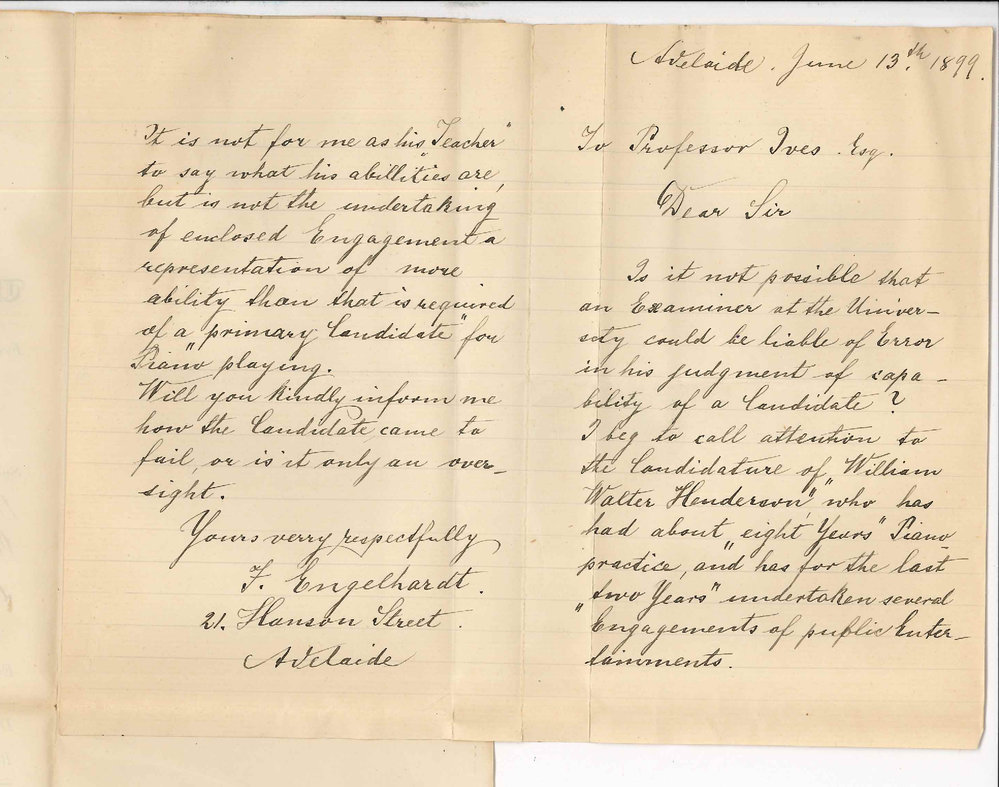 Adelaide. June 13.th 1899.
To Professor Ives. Esq.
Dear Sir
Is it not possible that
an Examiner at the Univer-
sity could be liable of Error
in his judgment of capa-
bility of a Candidate?
I beg to call attention to
the Candidature of „William
Walter Henderson", who has
had about „eight Years" Piano
practice, and has for the last
„two Years" undertaken several
Engagements of public Enter-
tainments.
It is not for me as his „Teacher"
to say what his abillities are,
but is not the undertaking
of enclosed Engagement a
representation of more
ability than that is required
of a „primary Candidate" for
Piano playing.
Will you kindly inform me
how the Candidate came to
fail, or is it only an over-
sight.
Yours verry respectfully
F. Engelhardt.
21. Hanson Street.
Adelaide